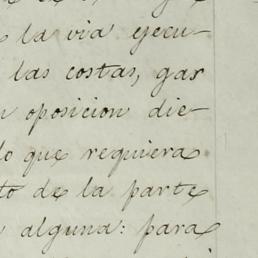 la via ejecu-
las costas, gas
oposicion die-
lo que requiera
to de la parte
alguna: para